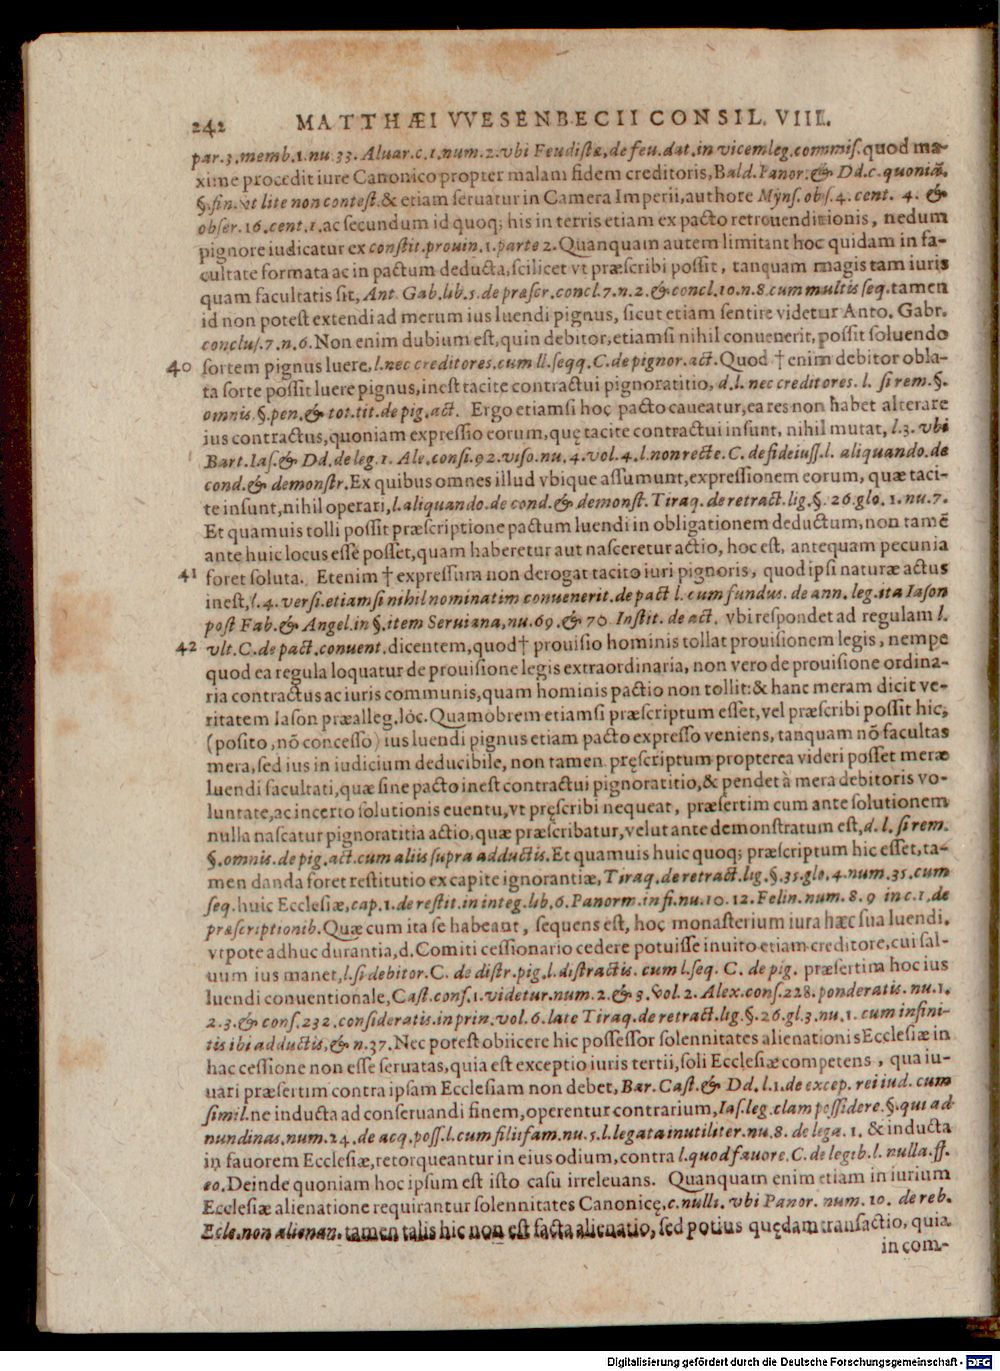 242 MATTHÆI VVESENBECII CONSIL. VIII.
par.3.memb.1.nu.33. Aluar.c.1.num.2.vbi Feudistæ, de feu.dat.in vicem leg.commis. quod ma-
xime procedit iure Canonico propter malam fidem creditoris, Bald. Panor. & Dd.c.quoniã.
§.fin.vt lite non contest. & etiam seruatur in Camera Imperii, authore Mÿns. obs. 4. cent. 4. &
obser.16.cent.1. ac secundum id quoq; his in terris etiam ex pacto retrouenditionis, nedum
pignore iudicatur ex constit.prouin.1.parte 2. Quanquam autem limitant hoc quidam in fa-
cultate formata ac in pactum deducta, scilicet vt præscribi possit, tanquam magis tam iuris
quam facultatis sit, Ant. Gab. lib. 5. de præscr. concl. 7. n. 2. & concl. 10. n. 8. cum multis seq. tamen
id non potest extendi ad merum ius luendi pignus, sicut etiam sentire videtur Anto. Gabr.
conclus. 7. n. 6. Non enim dubium est, quin debitor, etiamsi nihil conuenerit, possit soluendo
40 sortem pignus luere, l. nec creditores. cum ll. seqq. C. de pignor. act. Quod † enim debitor obla-
ta sorte possit luere pignus, inest tacite contractui pignoratitio, d. l. nec creditores. l. si rem. §.
omnis. §. pen. & tot. tit. de pig. act. Ergo etiamsi hoc pacto caueatur, ea res non habet alterare
ius contractus, quoniam expressio eorum, quę tacite contractui insunt, nihil mutat, l. 3. vbi
Bart. Ias. & Dd. de leg. 1. Ale. consi. 92. viso. nu. 4. vol. 4. l. non recte. C. de fideiuss. l. aliquando. de
cond. & demonstr. Ex quibus omnes illud vbique assumunt, expressionem eorum, quæ taci-
te insunt, nihil operari, l. aliquando. de cond. & demonst. Tiraq. de retract. lig. §. 26. glo. 1. nu. 7.
Et quamuis tolli possit præscriptione pactum luendi in obligationem deductum, non tamẽ
ante huic locus esse posset, quam haberetur aut nasceretur actio, hoc est, antequam pecunia
41 foret soluta. Etenim † expressum non derogat tacito iuri pignoris, quod ipsi naturæ actus
inest, l. 4. versi. etiamsi nihil nominatim conuenerit. de pact l. cum fundus. de ann. leg. ita Iason
post Fab. & Angel. in §. item Seruiana, nu. 69. & 70. Instit. de act. vbi respondet ad regulam l.
42 vlt. C. de pact. conuent. dicentem, quod † prouisio hominis tollat prouisionem legis, nempe
quod ea regula loquatur de prouisione legis extraordinaria, non vero de prouisione ordina-
ria contractus ac iuris communis, quam hominis pactio non tollit: & hanc meram dicit ve-
ritatem Iason præalleg. loc. Quamobrem etiamsi præscriptum esset, vel præscribi possit hic,
(posito, nō concesso) ius luendi pignus etiam pacto expresso veniens, tanquam nō facultas
mera, sed ius in iudicium deducibile, non tamen pręscriptum propterea videri posset meræ
luendi facultati, quæ sine pacto inest contractui pignoratitio, & pendet à mera debitoris vo-
luntate, ac incerto solutionis euentu, vt pręscribi nequeat, præsertim cum ante solutionem
nulla nascatur pignoratitia actio, quæ præscribatur, velut ante demonstratum est, d. l. si rem.
§. omnis. de pig. act. cum aliis supra adductis. Et quamuis huic quoq; præscriptum hic esset, ta-
men danda foret restitutio ex capite ignorantiæ, Tiraq. de retract. lig. §. 35. glo. 4. num. 35. cum
seq. huic Ecclesiæ, cap. 1. de restit. in integ. lib. 6. Panorm. in fi. nu. 10. 12. Felin. num. 8. 9 in c. 1. de
præscriptionib. Quæ cum ita se habeant, sequens est, hoc monasterium iura hæc sua luendi,
vtpote adhuc durantia, d. Comiti cessionario cedere potuisse inuito etiam creditore, cui sal-
uum ius manet, l. si debitor. C. de distr. pig. l. distractis. cum l. seq. C. de pig. præsertim hoc ius
luendi conuentionale, Cast. cons. 1. videtur. num. 2. & 3. vol. 2. Alex. cons. 228. ponderatis. nu. 1.
2. 3. & cons. 232. consideratis. in prin. vol. 6. late Tiraq. de retract. lig. §. 26. gl. 3. nu. 1. cum infini-
tis ibi adductis, & n. 37. Nec potest obiicere hic possessor solennitates alienationis Ecclesiæ in
hac cessione non esse seruatas, quia est exceptio iuris tertii, soli Ecclesiæ competens, qua iu-
uari præsertim contra ipsam Ecclesiam non debet, Bar. Cast. & Dd. l. 1. de excep. rei iud. cum
simil. ne inducta ad conseruandi finem, operentur contrarium, Ias. leg. clam possidere. §. qui ad
nundinas. num. 24. de acq. poss. l. cum filiifam. nu. 5. l. legata inutiliter. nu. 8. de lega. 1. & inducta
in fauorem Ecclesiæ, retorqueantur in eius odium, contra l. quod fauore. C. de legib. l. nulla. ff.
eo. Deinde quoniam hoc ipsum est isto casu irreleuans. Quanquam enim etiam in iurium
Ecclesiæ alienatione requirantur solennitates Canonicę, c. nulli. vbi Panor. num. 10. de reb.
Ecle. non alienan. tamen talis hic non est facta alienatio, sed potius quędam transactio, quia
in com-
Digitalisierung gefördert durch die Deutsche Forschungsgemeinschaft - DFG